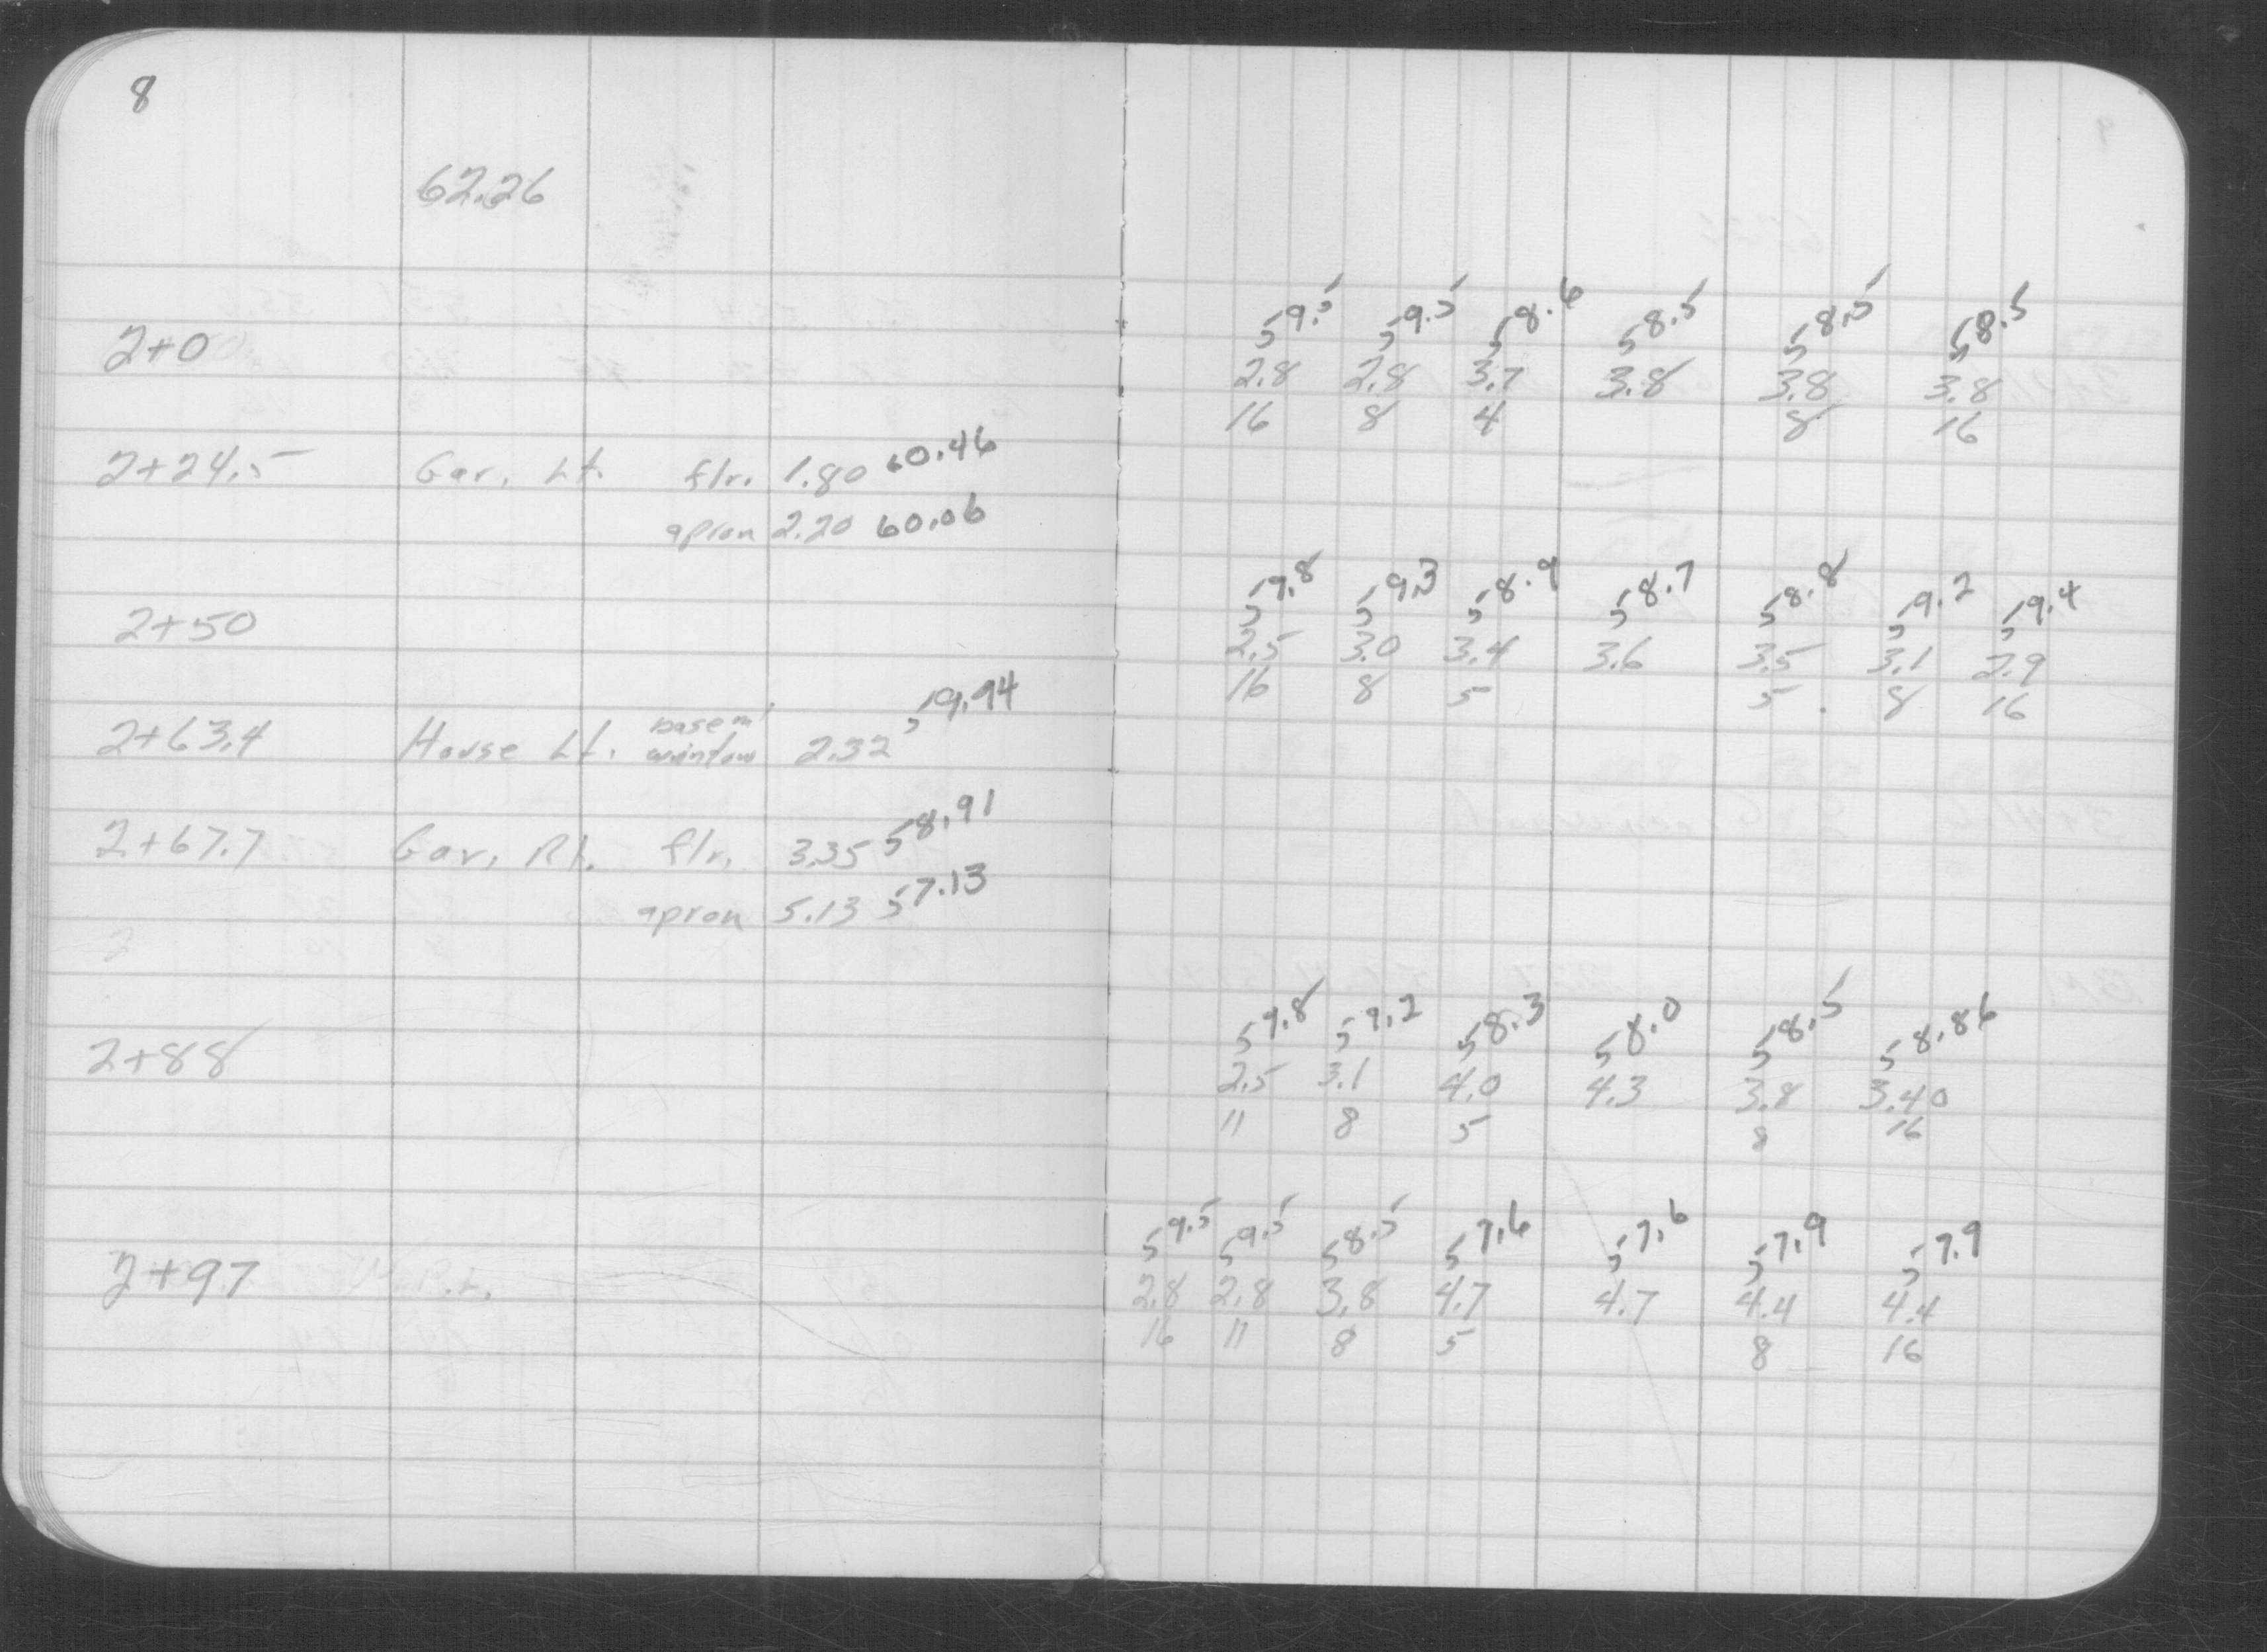 8
62.26
2+0
2+24.5 Gar. Lt. flr. 1.80 60.46
apron 2.20 60.06
2+50
2+63.4 House Lt. basem't window 2.32 59.94
2+67.7 Gar. Rt. flr. 3.35 58.91
apron 5.13 57.13
2
2+88
2+97
59.5 59.5 58.6 58.5 58.5 58.5
2.8 2.8 3.7 3.8 3.8 3.8
16 8 4 8 16
59.8 59.3 58.9 58.7 58.8 59.2 59.4
2.5 3.0 3.4 3.6 3.5 3.1 2.9
16 8 5 5 8 16
59.8 59.2 58.3 58.0 58.5 58.86
2.5 3.1 4.0 4.3 3.8 3.40
11 8 5 8 16
59.5 59.5 58.5 57.6 57.6 57.9 57.9
2.8 2.8 3.8 4.7 4.7 4.4 4.4
16 11 8 5 8 16